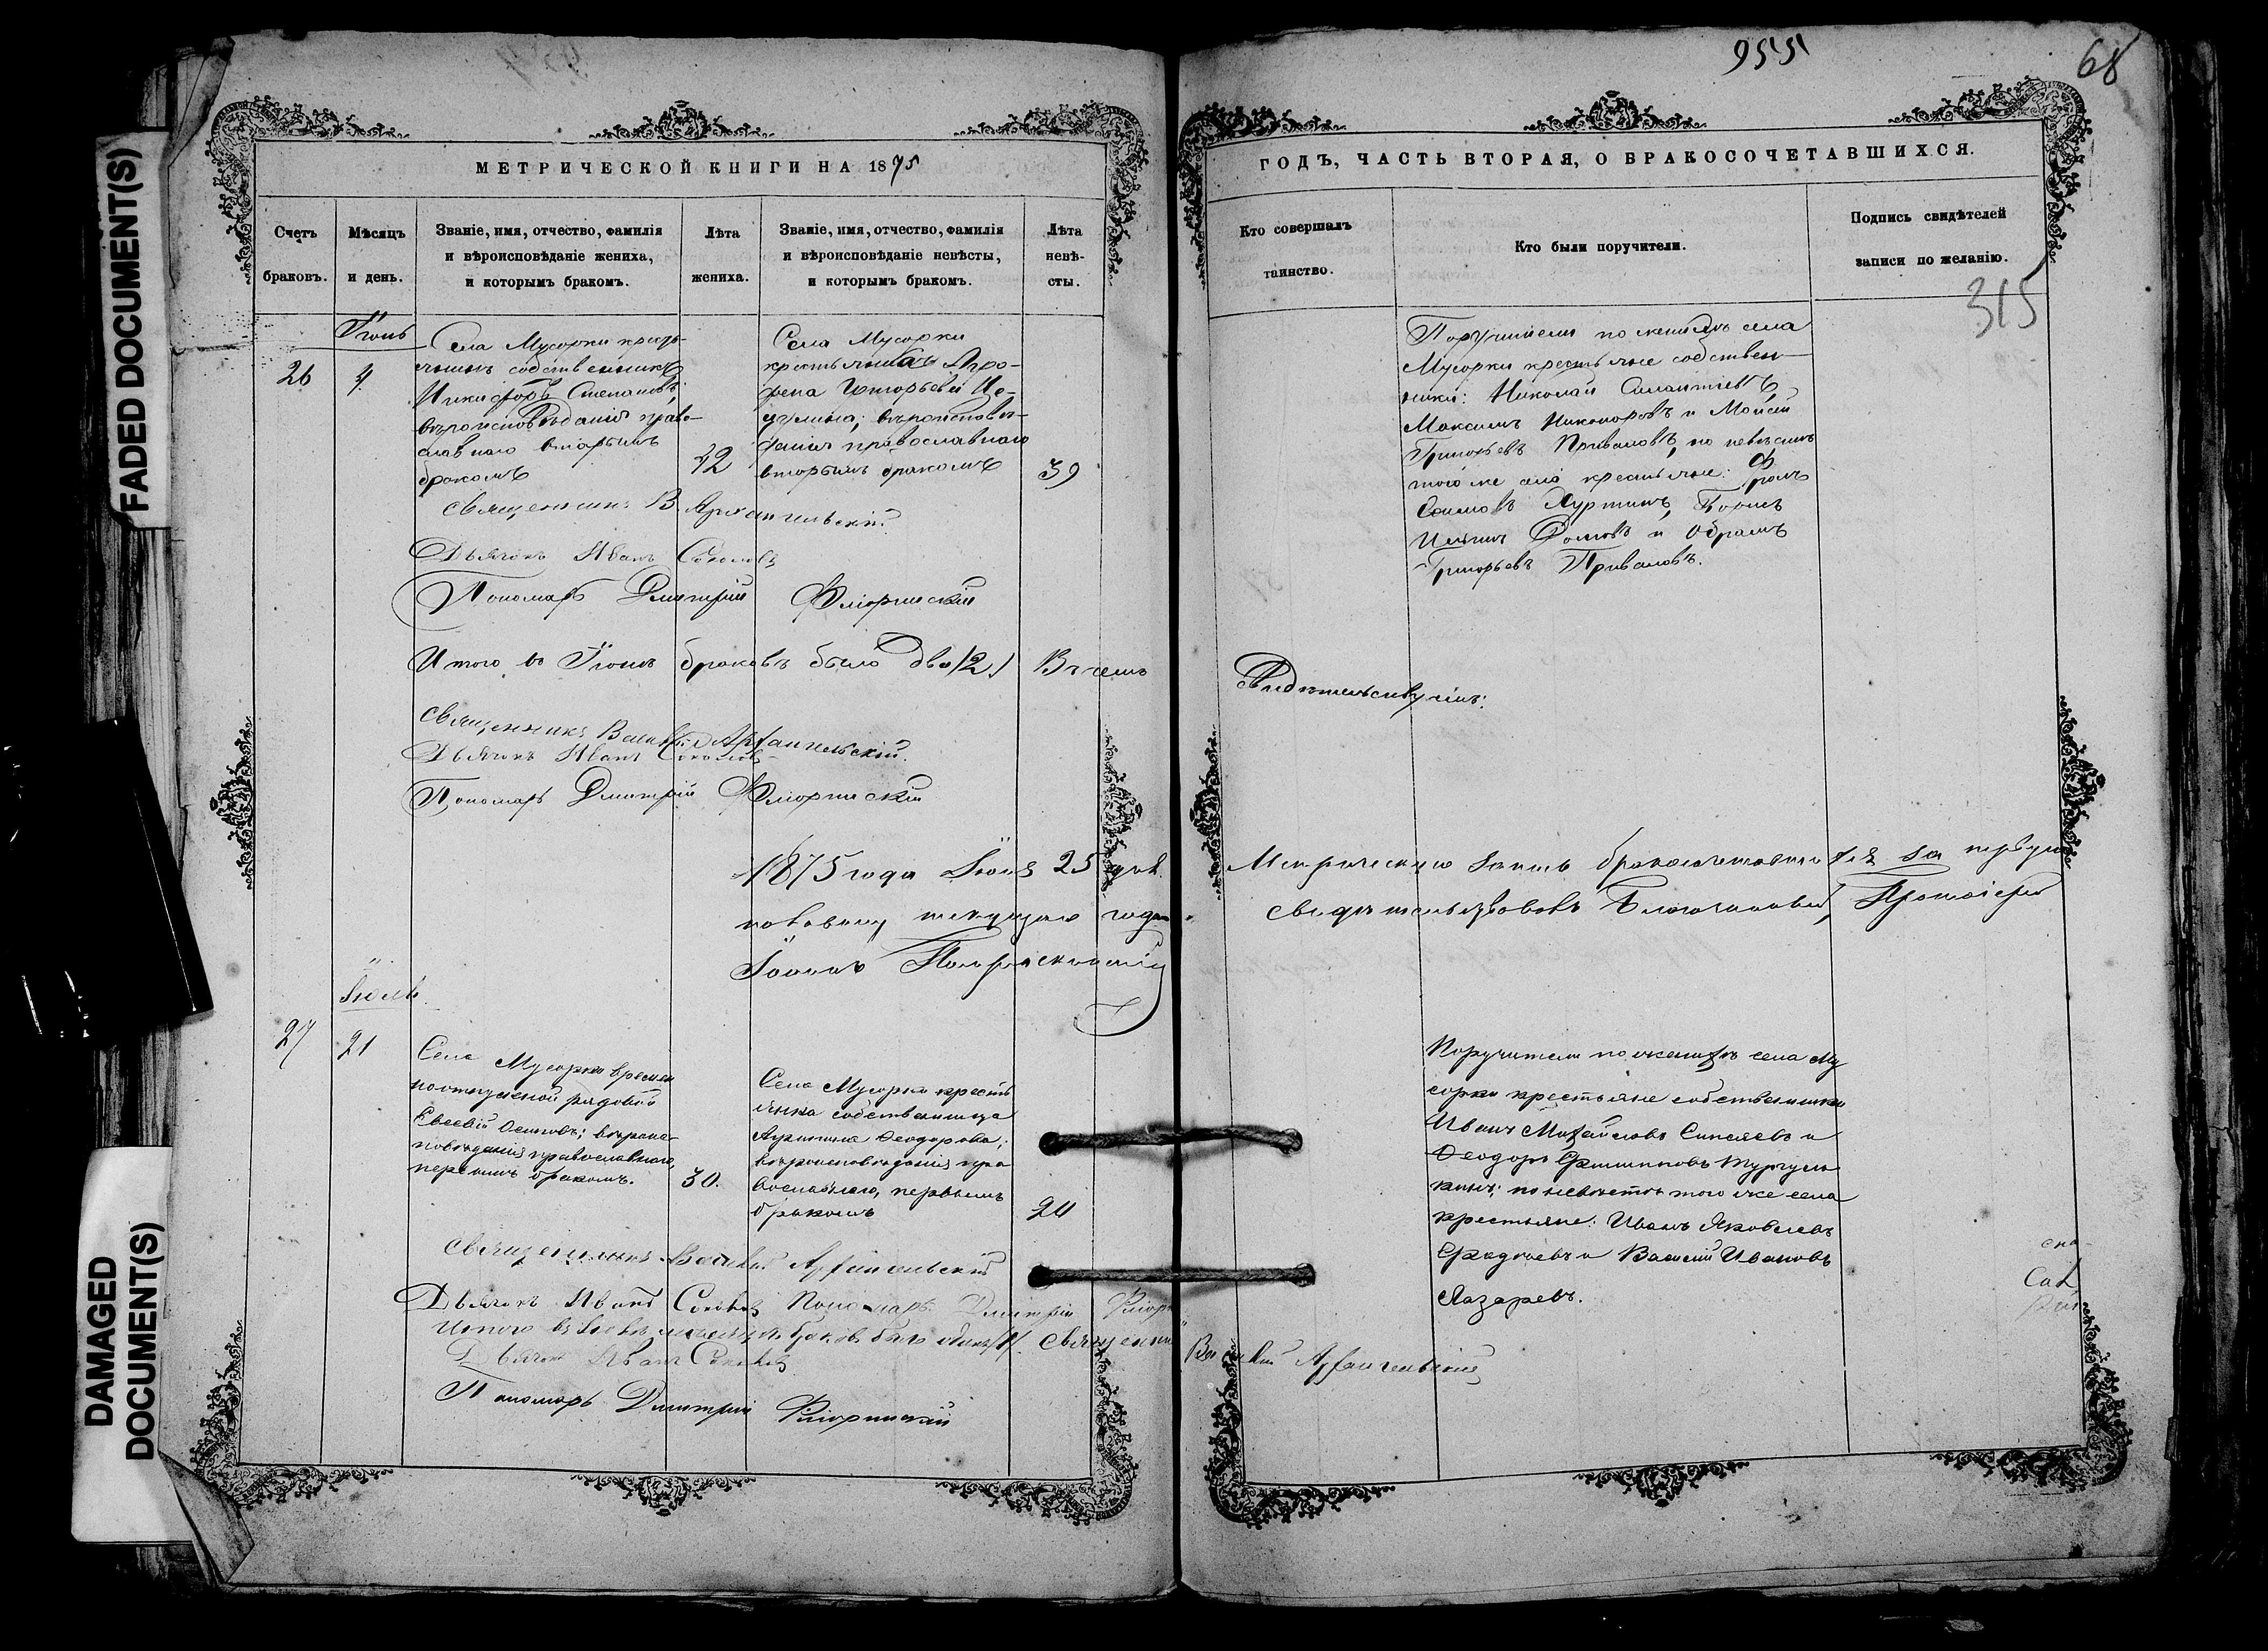 955
68
315
FADED DOCUMENT(S)
DAMAGED
DOCUMENT(S)
МЕТРИЧЕСКОЙ КНИГИ НА 1875
Счетъ
браковъ.
Мѣсяцъ
и день.
Званіе, имя, отчество, фамилія
и вѣроисповѣданіе жениха,
и которымъ бракомъ.
Лѣта
жениха.
Званіе, имя, отчество, фамилія
и вѣроисповѣданіе невѣсты,
и которымъ бракомъ.
Лѣта
невѣ-
сты.
Іюнь
26
4
Села Мусорки кресть-
янинъ собственникъ
Никифоръ Степановъ,
вѣроисповѣданія право-
славнаго вторымъ
бракомъ
42
Села Мусорки
крестьянка
Григорьева
вѣроисповѣ-
данія православнаго
вторымъ бракомъ
39
Священникъ В Архангельскій
Дьячокъ Иванъ Соколовъ
Пономарь Димитрій Флоринскій
Итого въ Іюнѣ браковъ было два /2./ Въ чемъ
Священникъ Василій Архангельскій.
Дьячокъ Иванъ Соколовъ
Пономарь Димитрій Флоринскій
1875 года Іюля 25 дня.
половину текущаго года
Іоаннъ
Іюль.
27
21
Села Мусорки времен
ноотпускной рядовой
Евсевій Осиповъ; вѣроис-
повѣданія православнаго,
первымъ бракомъ.
30.
Села Мусорки кресть
янка собственница
Агрипина Ѳеодорова;
вѣроисповѣданія пра
вославнаго, первымъ
бракомъ
24
Священникъ Василій Архангельскій
Дьячокъ Иванъ Соколовъ Пономарь Димитрій Флорин
Итого въ Іюлѣ мѣсяцѣ браковъ было одинъ /1/. Священникъ
Дьячокъ Иванъ Соколовъ
Пономарь Димитрій Флоринскій
ГОДЪ, ЧАСТЬ ВТОРАЯ, О БРАКОСОЧЕТАВШИХСЯ.
Кто совершалъ
таинство.
Кто были поручители.
Подпись свидѣтелей
записи по желанію.
Поручители по женихѣ села
Мусорки крестьяне собствен-
ники: Николай Силантіевъ,
Максимъ Никоноровъ и Моисей
Григорьевъ Приваловъ, по невѣстѣ
того же села крестьяне: Фролъ
Борисъ
и Абрамъ
Григорьевъ Приваловъ.
Свидѣтельствуемъ:
Метрическую запись бракосочетавшихся за первую
свидѣтельствовалъ Благочинный, Протоіерей
Поручители по женихѣ села Му
сорки крестьяне собственники
Иванъ Михайловъ Синяевъ и
Ѳеодоръ Филипповъ
по невѣстѣ того же села
крестьяне: Иванъ Яковлевъ
и Василій Ивановъ
Лазаревъ.
Василій Архангельскій